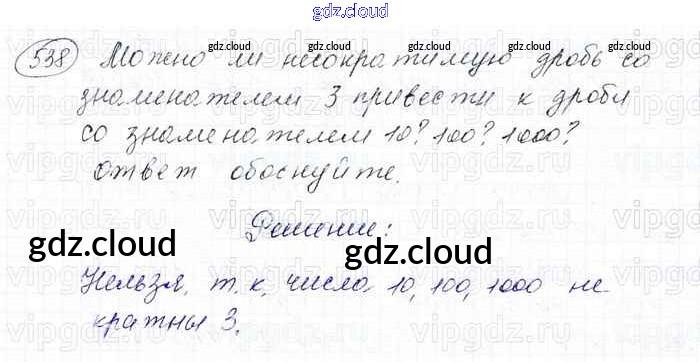 gdz.cloud
538 Можно ли несократимую дробь со
знаменателем 3 привести к дроби
со знаменателем 10? 100? 1000?
ответ обоснуйте.
Решение:
Нельзя, т.к. числа 10, 100, 1000 не
кратны 3.
gdz.cloud gdz.cloud gdz.cloud gdz.cloud
gdz.cloud gdz.cloud gdz.cloud gdz.cloud
gdz.cloud gdz.cloud
gdz.cloud gdz.cloud
vipgdz vipgdz vipgdz vipgdz